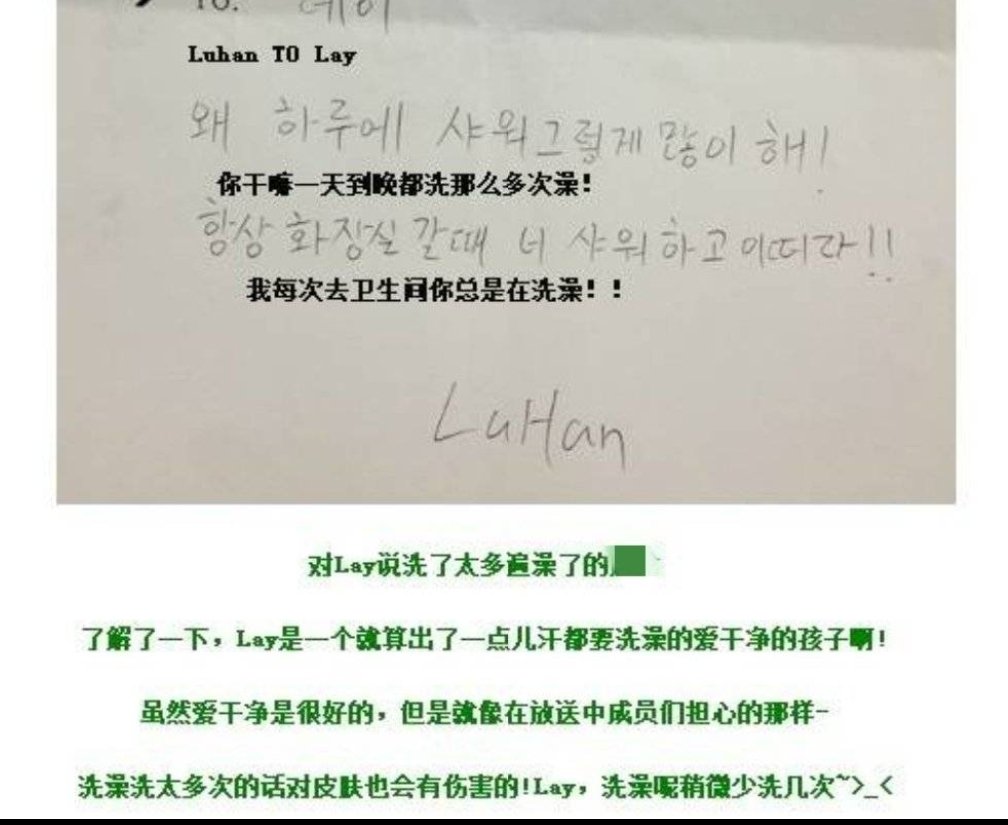 TO. 레이
Luhan TO Lay
왜 하루에 샤워그렇게 많이 해!
你干嘛一天到晚都洗那么多次澡!
항상 화장실 갈때 너 샤워하고 이떠라!!
我每次去卫生间你总是在洗澡!!
LuHan
对Lay说洗了太多遍澡了的
了解了一下，Lay是一个就算出了一点儿汗都要洗澡的爱干净的孩子啊!
虽然爱干净是很好的，但是就像在放送中成员们担心的那样-
洗澡洗太多次的话对皮肤也会有伤害的!Lay，洗澡呢稍微少洗几次~>_<